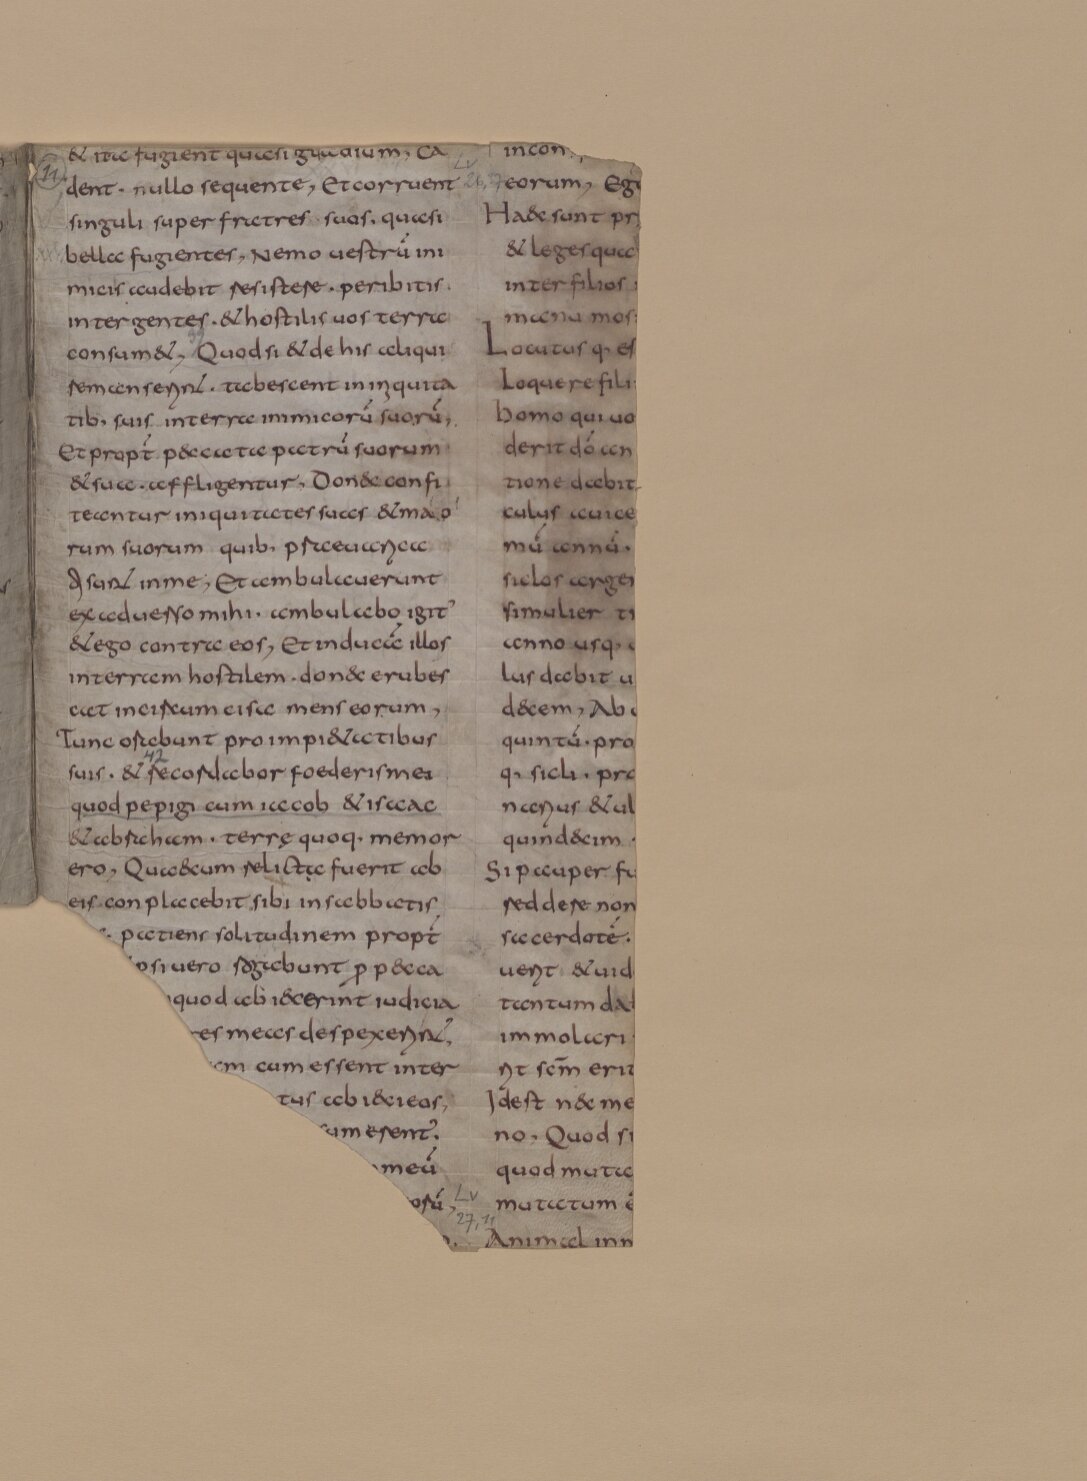 & ita fugient quasi gladium, Ca
dent. nullo sequente, Et corruent
singuli super fratres suos. quasi
bella fugientes, Nemo uestrū ini
micis audebit resistere. peribitis.
inter gentes. & hostilis uos terra
consum&, Quod si & de his aliqui
remanser̄. tabescent in iniquita
tib, suis in terra inimicorū suorū,
Et propt́ peccata patrū suorum
& sua. affligentur, Donec confi
teantur iniquitates suas & maio
rum suorum quib, praeuaricati
sunt in me, Et ambulauerunt
ex aduerso mihi. ambulabo igit
& ego contra eos, Et inducā illos
in terram hostilem. donec erubes
cat incircumcisa mens eorum,
Tunc orabunt pro impi&atibus
suis. & recordabor foederis mei
42
quod pepigi cum iacob & isaac
& abraham. terrę quoq. memor
ero, Quae cum relicta fuerit ab
eis conplacebit sibi in sabbatis
patiens solitudinem propt́
psi uero rogabunt p pecca
quod abiecerint iudicia
res meas despexer̄
am cum essent inter
tus abieci eos,
sumerent.
meū
orū,
11
incon
eorum, Eg
Haec sunt pr
& leges quas
inter filios
manu mosi
Locutus q, es
Loquere fili
homo qui uo
derit dō an
tione dabit
culus a uice
mū annū.
siclos argen
si mulier tr
anno usq,
lus dabit u
decem, Ab
quintū. pro
q, sicli. pro
narius & ul
quindecim
Si pauper fu
redde re non
sacerdotē.
uerit & uid
tantum da
immolari
rit scm̄ erit
Id est nec me
no, Quod si
quod muta
mutatum ē
Animal inn
Lv
27,11